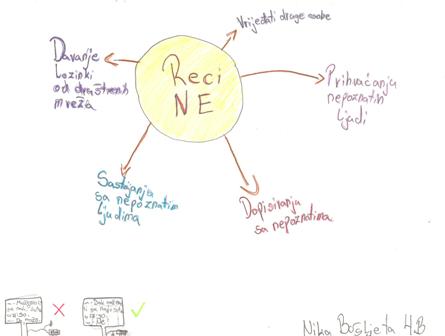 Vrijeđati druge osobe
Davanje
Lozinki
od društvenih
mreža
Reci
NE
Prihvaćanju
nepoznatih
ljudi
Sastajanju
sa nepoznatim
ljudima
Dopisivanju
sa nepoznatima
Nika 4.B